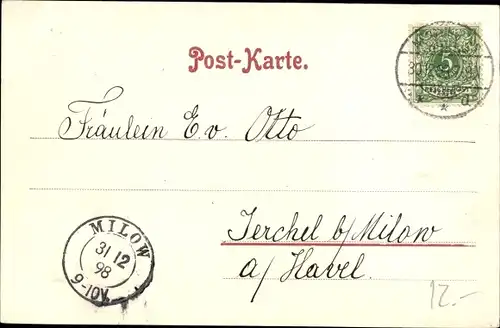 Post-Karte.
5
Fräulein E. v. Otto
Jerchel b/Milow
a/ Havel.
MILOW
31 12
98
9-10V.
12.-